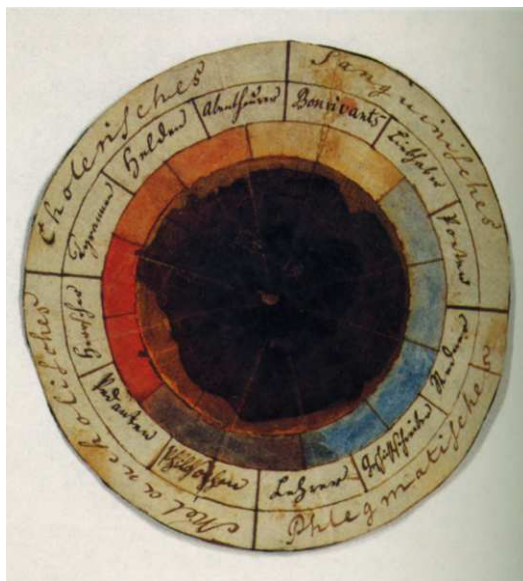 Cholerisches
Sanguinisches
Phlegmatisches
Melancholisches
Tyrannen
Helden
Abentheurer
Bonvivants
Liebhaber
Poeten
Redner
Lehrer
Philosophen
Pedanten
Herrscher